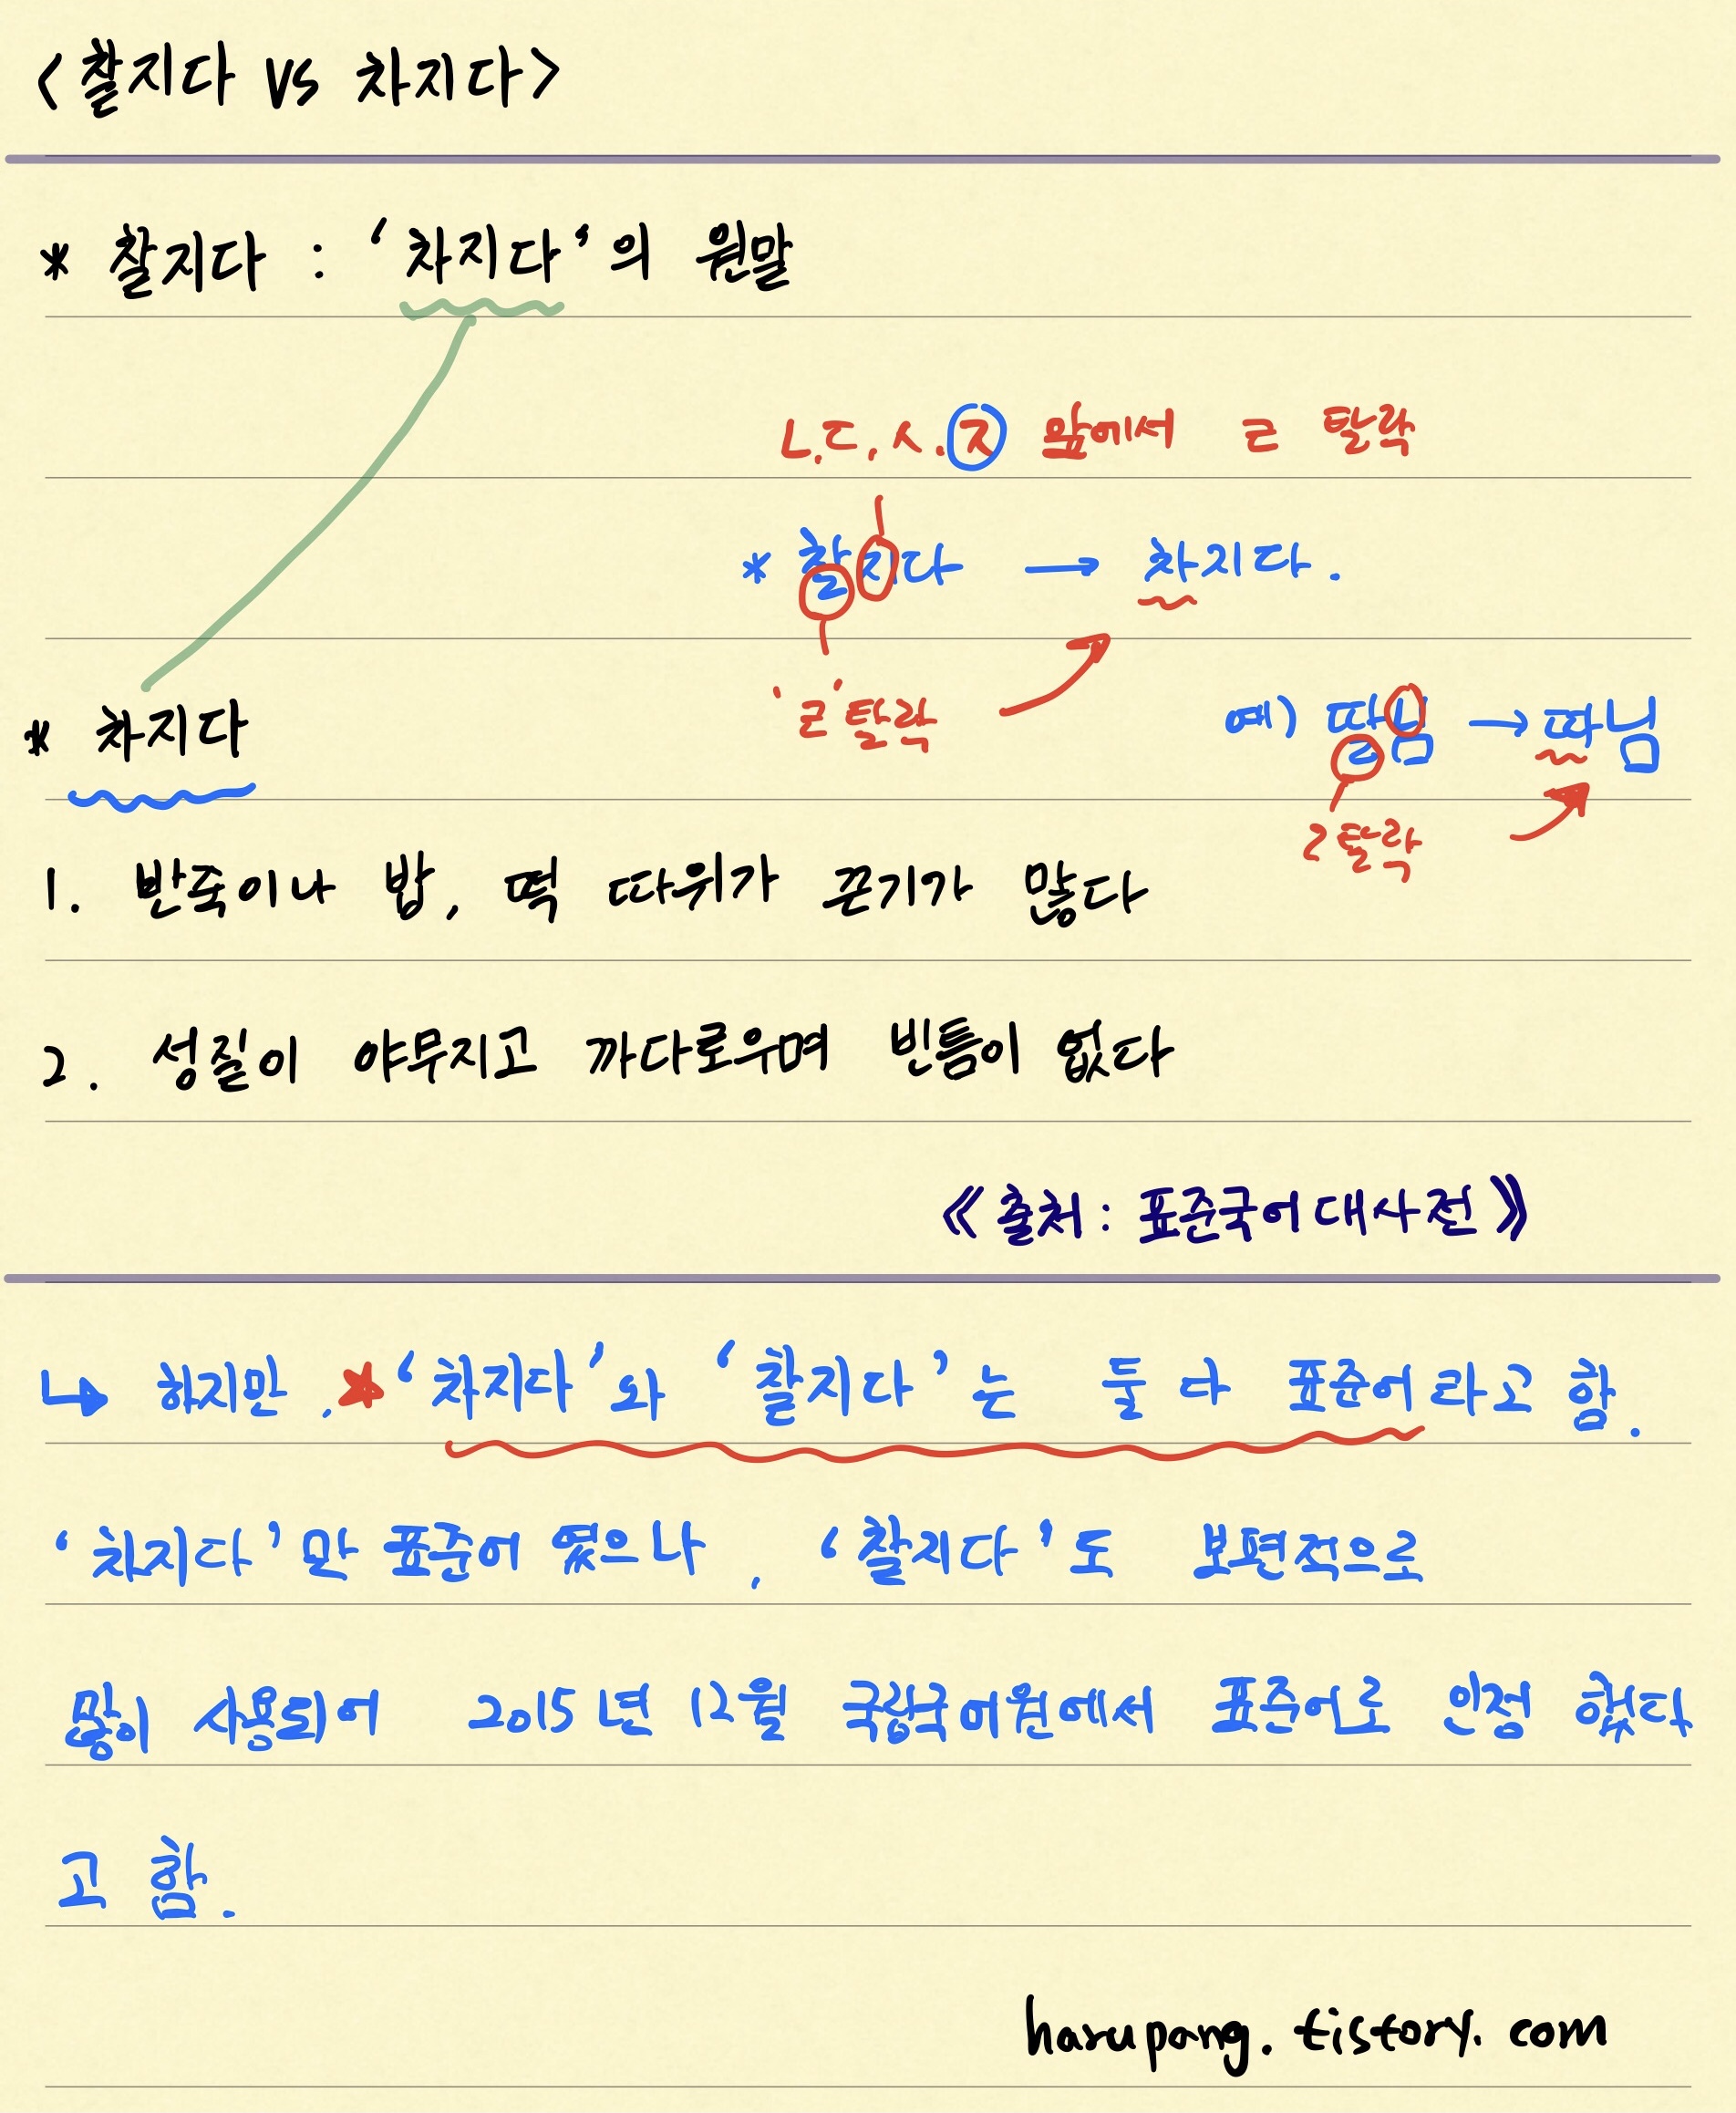 <찰지다 vs 차지다>
* 찰지다 : '차지다'의 원말
ㄴ.ㄷ.ㅅ.ㅈ 앞에서 ㄹ 탈락
* 찰지다 → 차지다.
'ㄹ'탈락
예) 딸님 → 따님
ㄹ탈락
* 차지다
1. 반죽이나 밥, 떡 따위가 끈기가 많다
2. 성질이 야무지고 까다로우며 빈틈이 없다
《출처 : 표준국어대사전》
↳ 하지만, ★'차지다'와 '찰지다'는 둘 다 표준어라고 함.
'차지다'만 표준어 였으나, '찰지다'도 보편적으로
많이 사용되어 2015년 12월 국립국어원에서 표준어로 인정 했다
고 함.
harupang.tistory.com